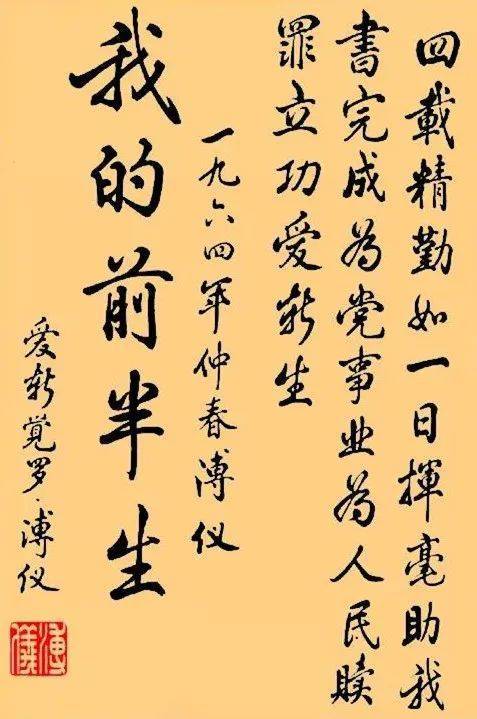 四載精勤如一日揮毫助我
書完成為党事业為人民贖
罪立功爱新生
一九六四年仲春溥仪
我的前半生
爱新觉罗·溥仪
溥儀